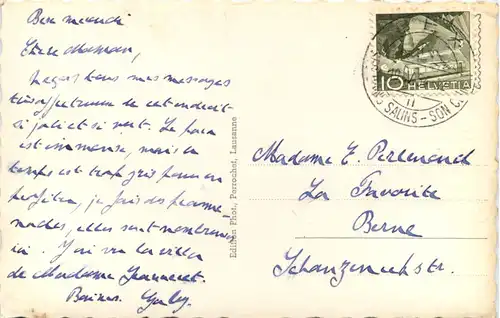 Chère Maman,
messages
de cet endroit
si joli et si vert. Le parc
est immense, mais le
temps est trop gris pour en
profiter, je fais des prome-
nades, elles sont nombreuses
ici. J'ai vu la villa
de Madame Jeanneret.
Baisers. Gaby.
Edition Phot. Perrochet, Lausanne
10 HELVETIA
SALINS - SON
Madame E.
La Favorite
Berne
Schanzeneckstr.